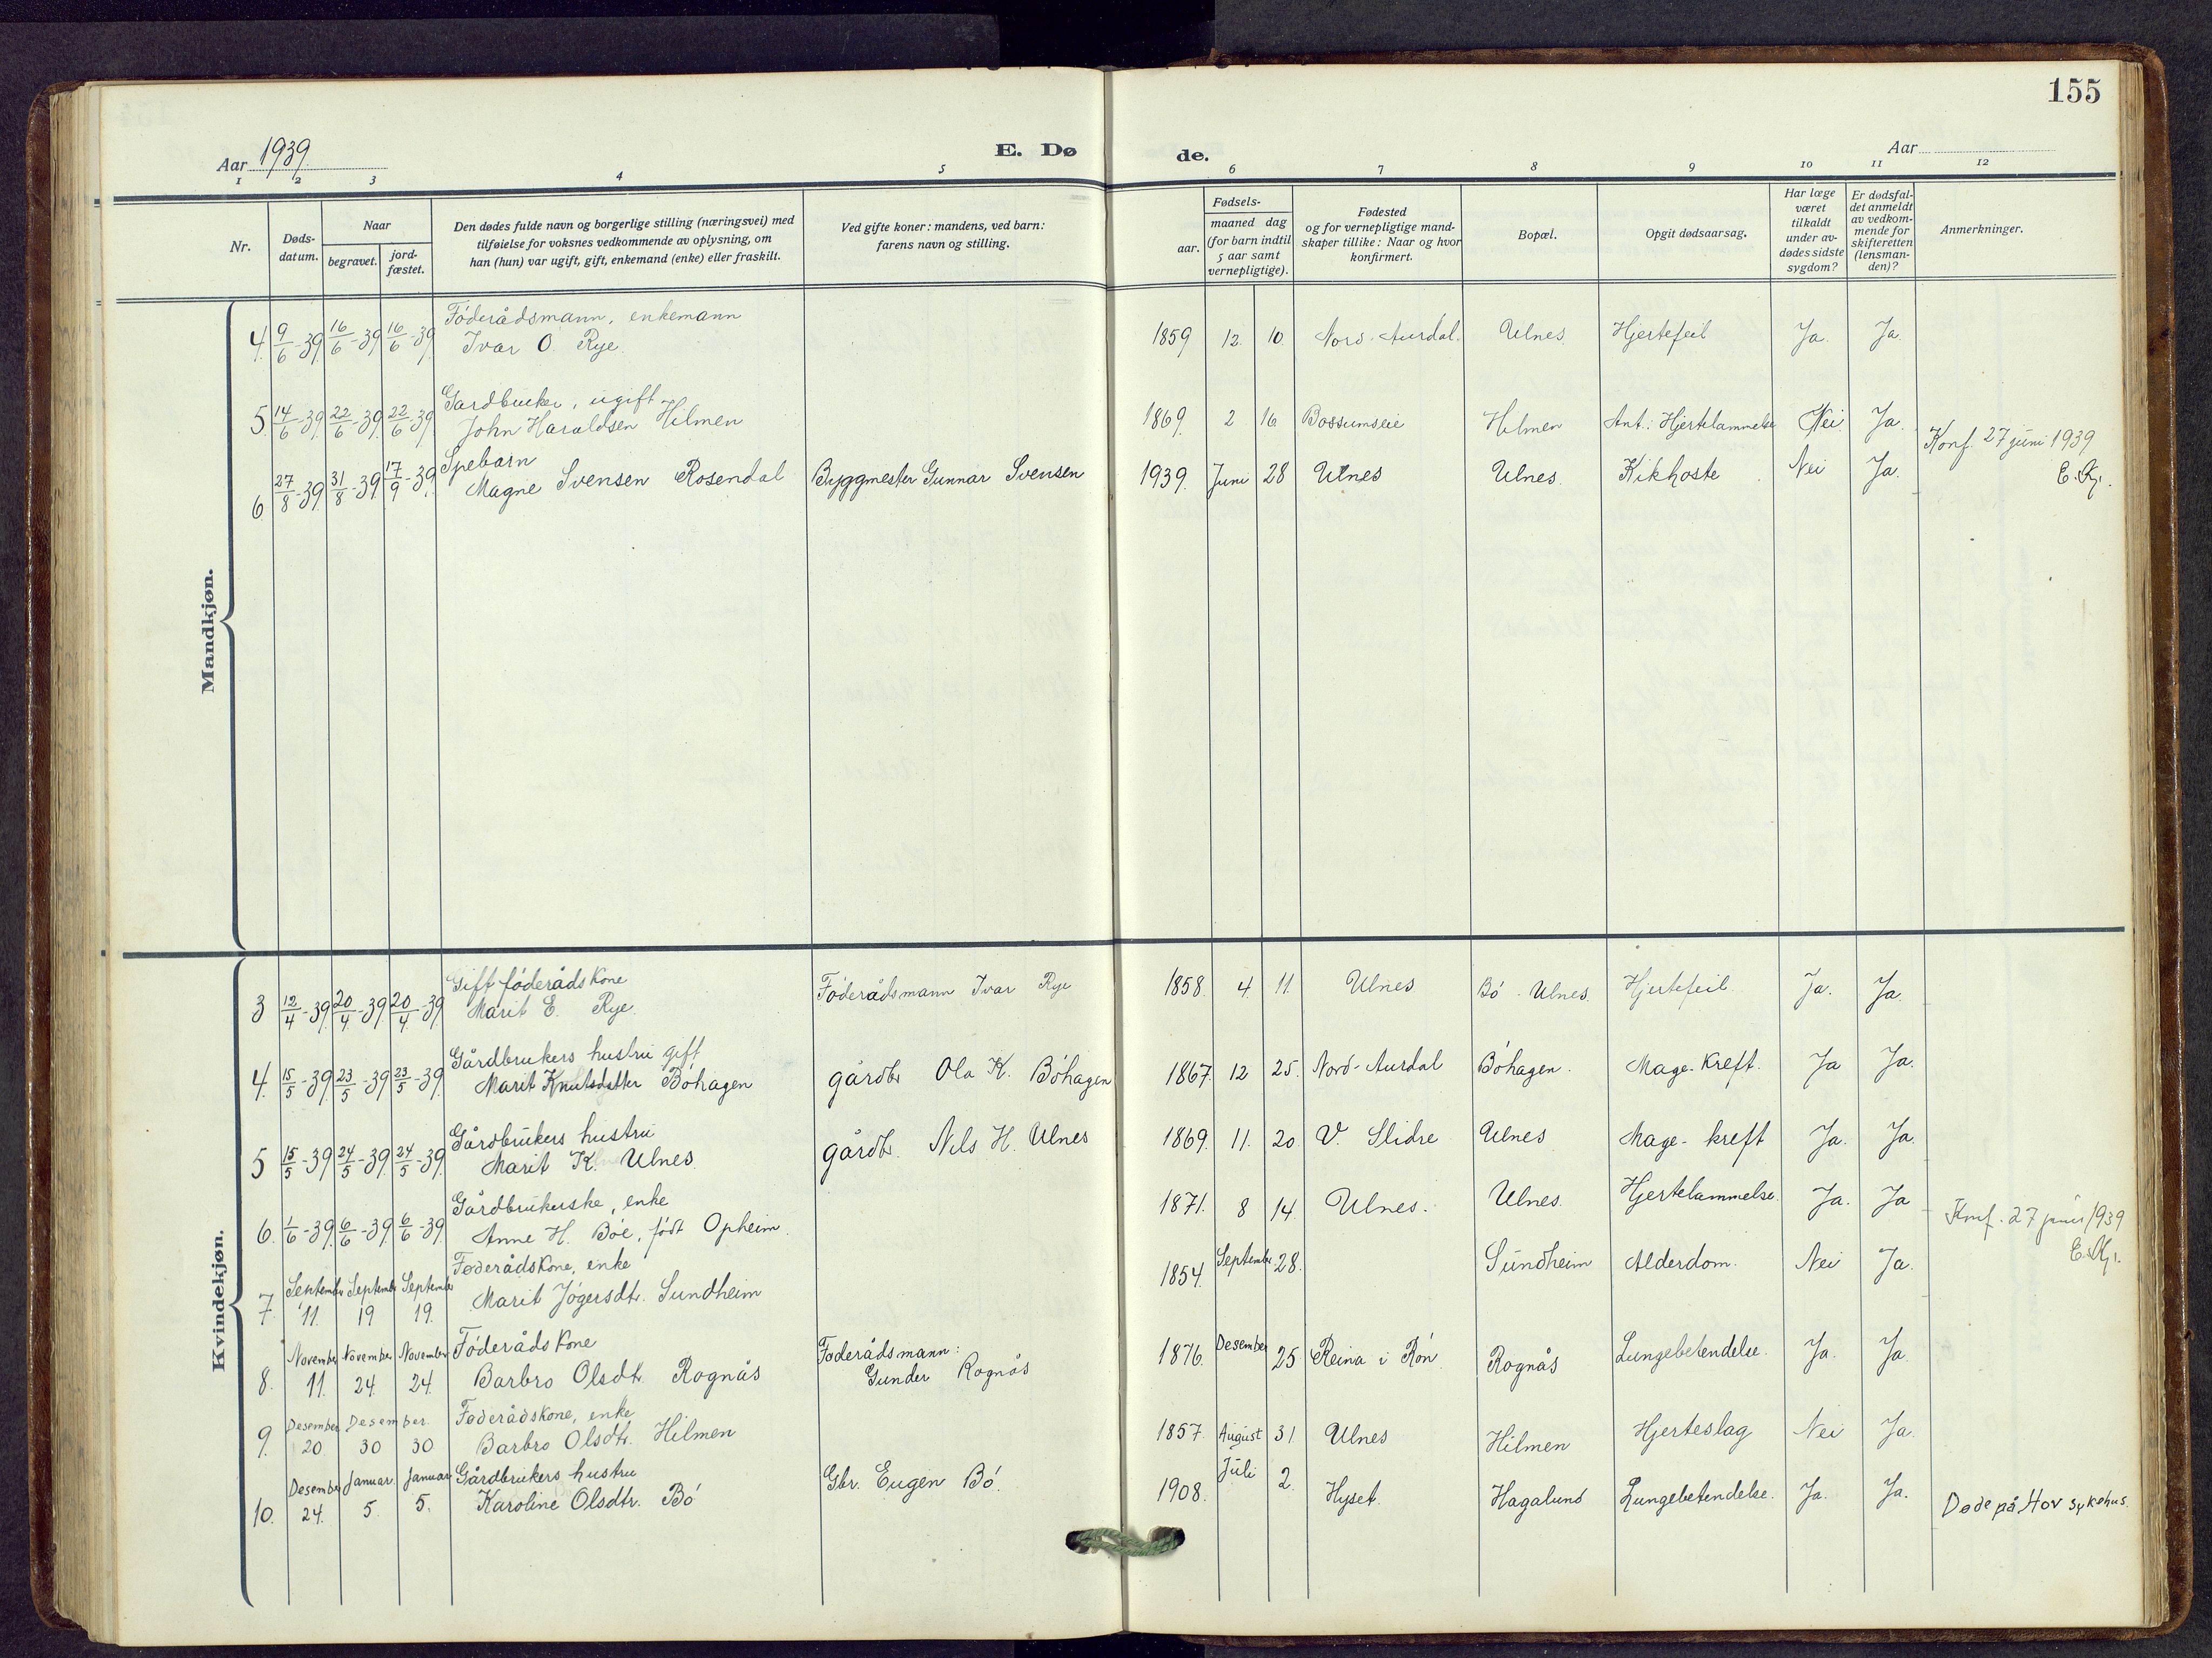 155
Aar 1939.
E. Dø de.
Aar
1 2 3 4 5 6 7 8 9 10 11 12
Nr.
Døds-
datum.
Naar
begravet.
jord-
fæstet.
Den dødes fulde navn og borgerlige stilling (næringsvei) med
tilføielse for voksnes vedkommende av oplysning, om
han (hun) var ugift, gift, enkemand (enke) eller fraskilt.
Ved gifte koner: mandens, ved barn:
farens navn og stilling.
Fødsels-
aar.
maaned dag
(for barn indtil
5 aar samt
vernepligtige).
Fødested
og for vernepligtige mand-
skaper tillike: Naar og hvor
konfirmert.
Bopæl.
Opgit dødsaarsag.
Har læge
været
tilkaldt
under av-
dødes sidste
sygdom?
Er dødsfal-
det anmeldt
av vedkom-
mende for
skifteretten
(lensman-
den)?
Anmerkninger.
Mandkjøn.
Føderådsmann, enkemann
4. 9/6-39 16/6-39 16/6-39 Ivar O. Rye. 1859 12. 10 Nord-Aurdal. Ulnes. Hjertefeil Ja. Ja.
Gardbruker, ugift
5. 14/6-39 22/6-39 22/6-39 John Haraldsen Hilmen 1869. 2 16 Bossumseie Hilmen Ant.: Hjertelammelse Nei Ja.
Konf. 27 juni 1939
E. Kj.
Spebarn
6. 27/8-39 31/8-39 17/9-39 Magne Svensen Rosendal Byggmester Gunnar Svensen 1939. Juni 28 Ulnes Ulnes. Kikhoste Nei Ja.
Kvindekjøn.
Gift føderådskone
3 12/4-39 20/4-39 20/4-39 Marit E. Rye. Føderådsmann Ivar Rye 1858. 4. 11. Ulnes Bø - Ulnes. Hjertefeil Ja. Ja.
Gårdbrukers hustru gift
4. 15/5-39 23/5-39 23/5-39 Marit Knutsdatter Bøhagen gårdbr Ola K. Bøhagen 1867. 12 25. Nord-Aurdal Bøhagen. Mage-kreft. Ja Ja.
Gårdbrukers hustru
5 15/5-39 24/5-39 24/5-39 Marit K. Ulnes. gårdb. Nils H. Ulnes 1869. 11. 20 V. Slidre Ulnes Mage-kreft Ja. Ja.
Gårdbrukerske, enke
6. 1/6-39 6/6-39 6/6-39 Anne H. Bøe, født Opheim. 1871. 8 14. Ulnes. Ulnes. Hjertelammelse. Ja. Ja
Konf. 27 juni 1939
E. Kj.
Føderådskone, enke
7. September 11. September 19 September 19. Marit Jøgersdt. Sundheim 1854. September 28. Sundheim Alderdom. Nei Ja.
Føderådskone
8. November 11. November 24. November 24. Barbro Olsdt. Rognås Føderådsmann:
Gunder Rognås 1876. Desember 25 Reina i Røn Rognås Lungebetendelse. Ja. Ja.
Føderådskone, enke
9. Desember 20. Desember. 30 30 Barbro Olsdt. Hilmen 1857. August 31. Ulnes Hilmen Hjerteslag Nei Ja.
Gårdbrukers hustru
10. Desember 24. Januar 5. Januar 5. Karoline Olsdtr. Bø Gbr. Eugen Bø. 1908. Juli 2. Hyset. Hagalund Lungebetendelse. Ja. Ja. Døde på Hov sykehus.